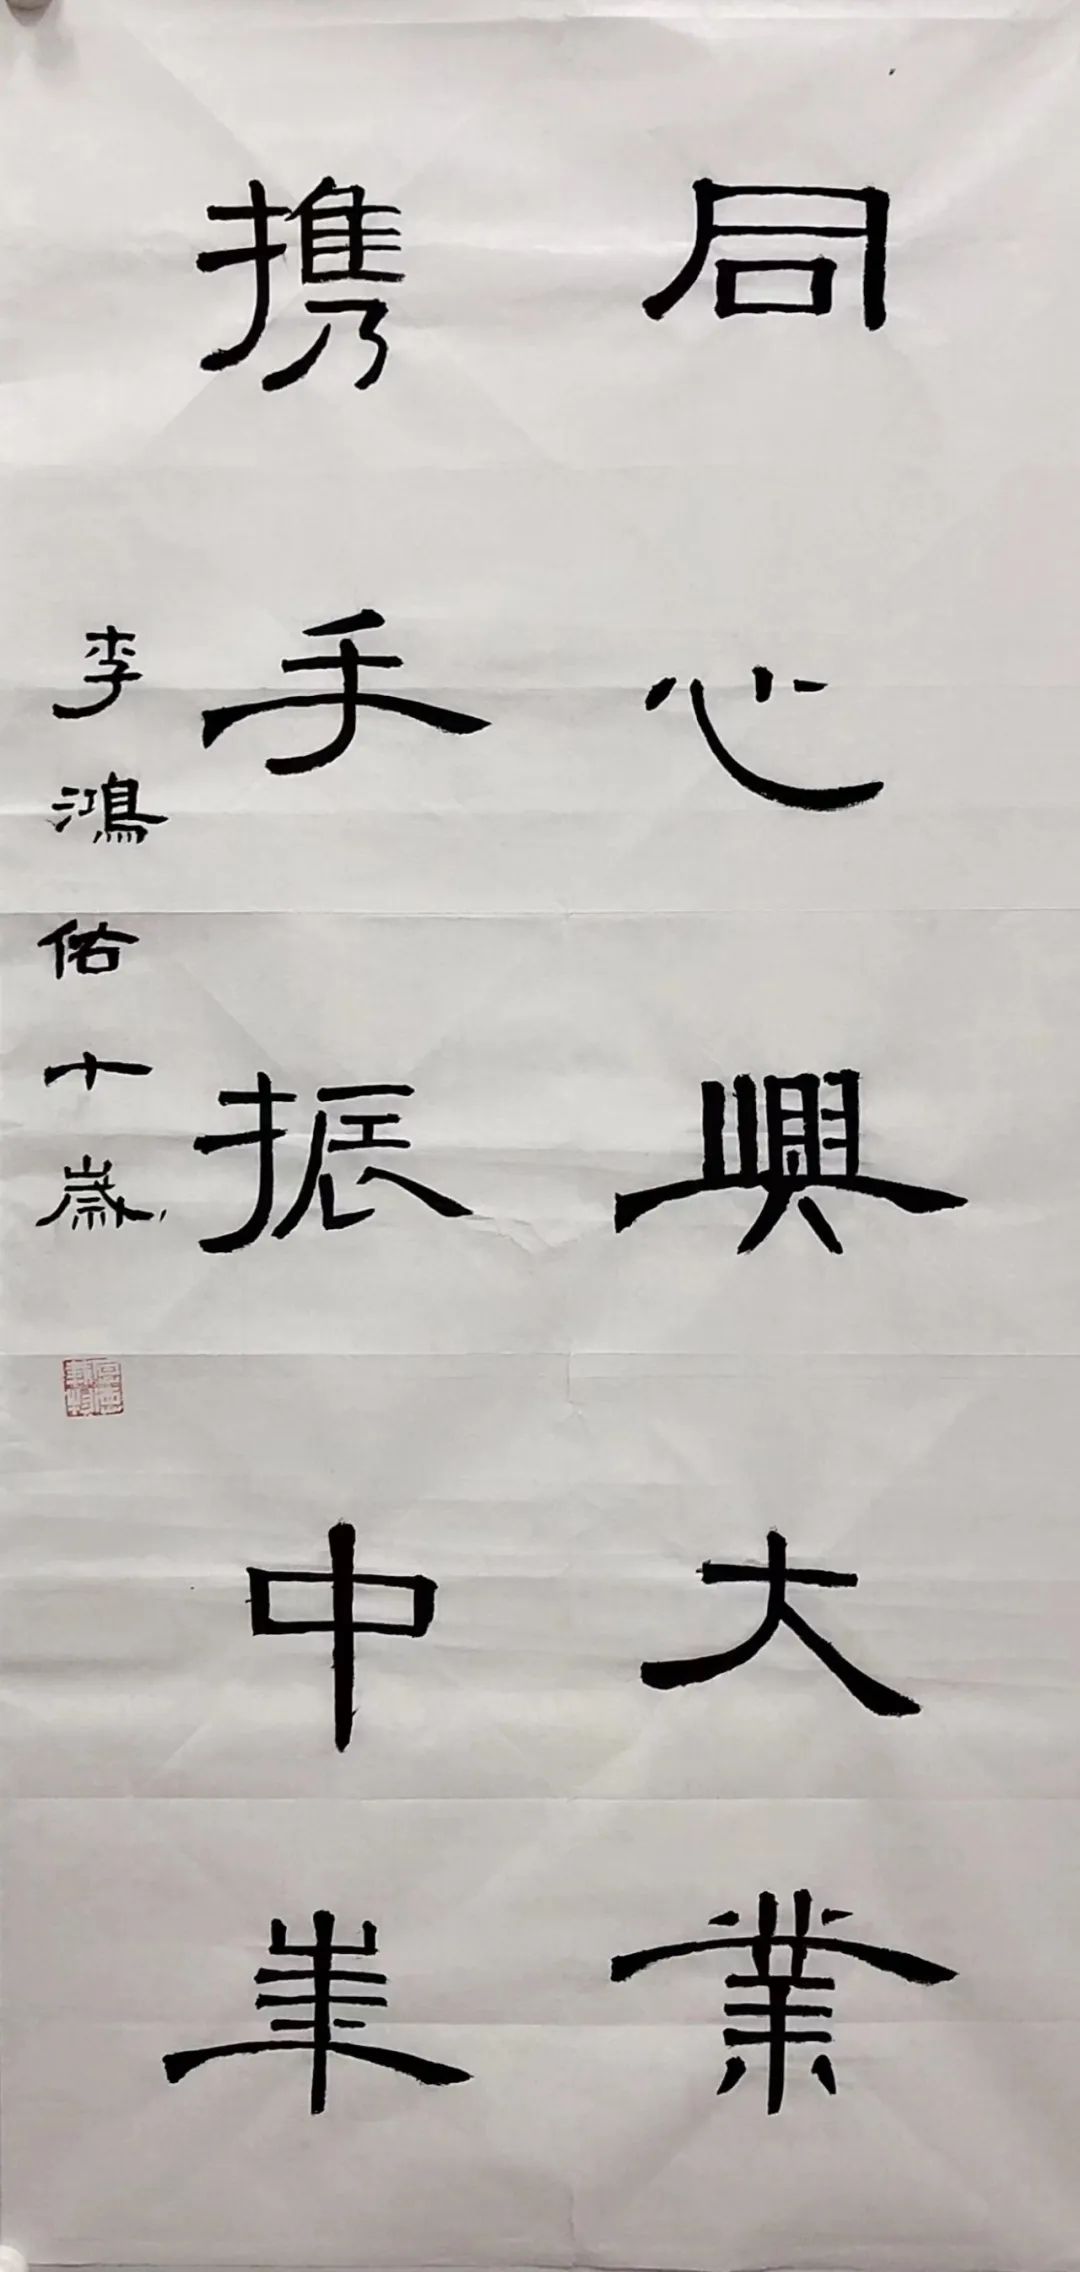 同心興大業
携手振中華
李鴻佑十歲